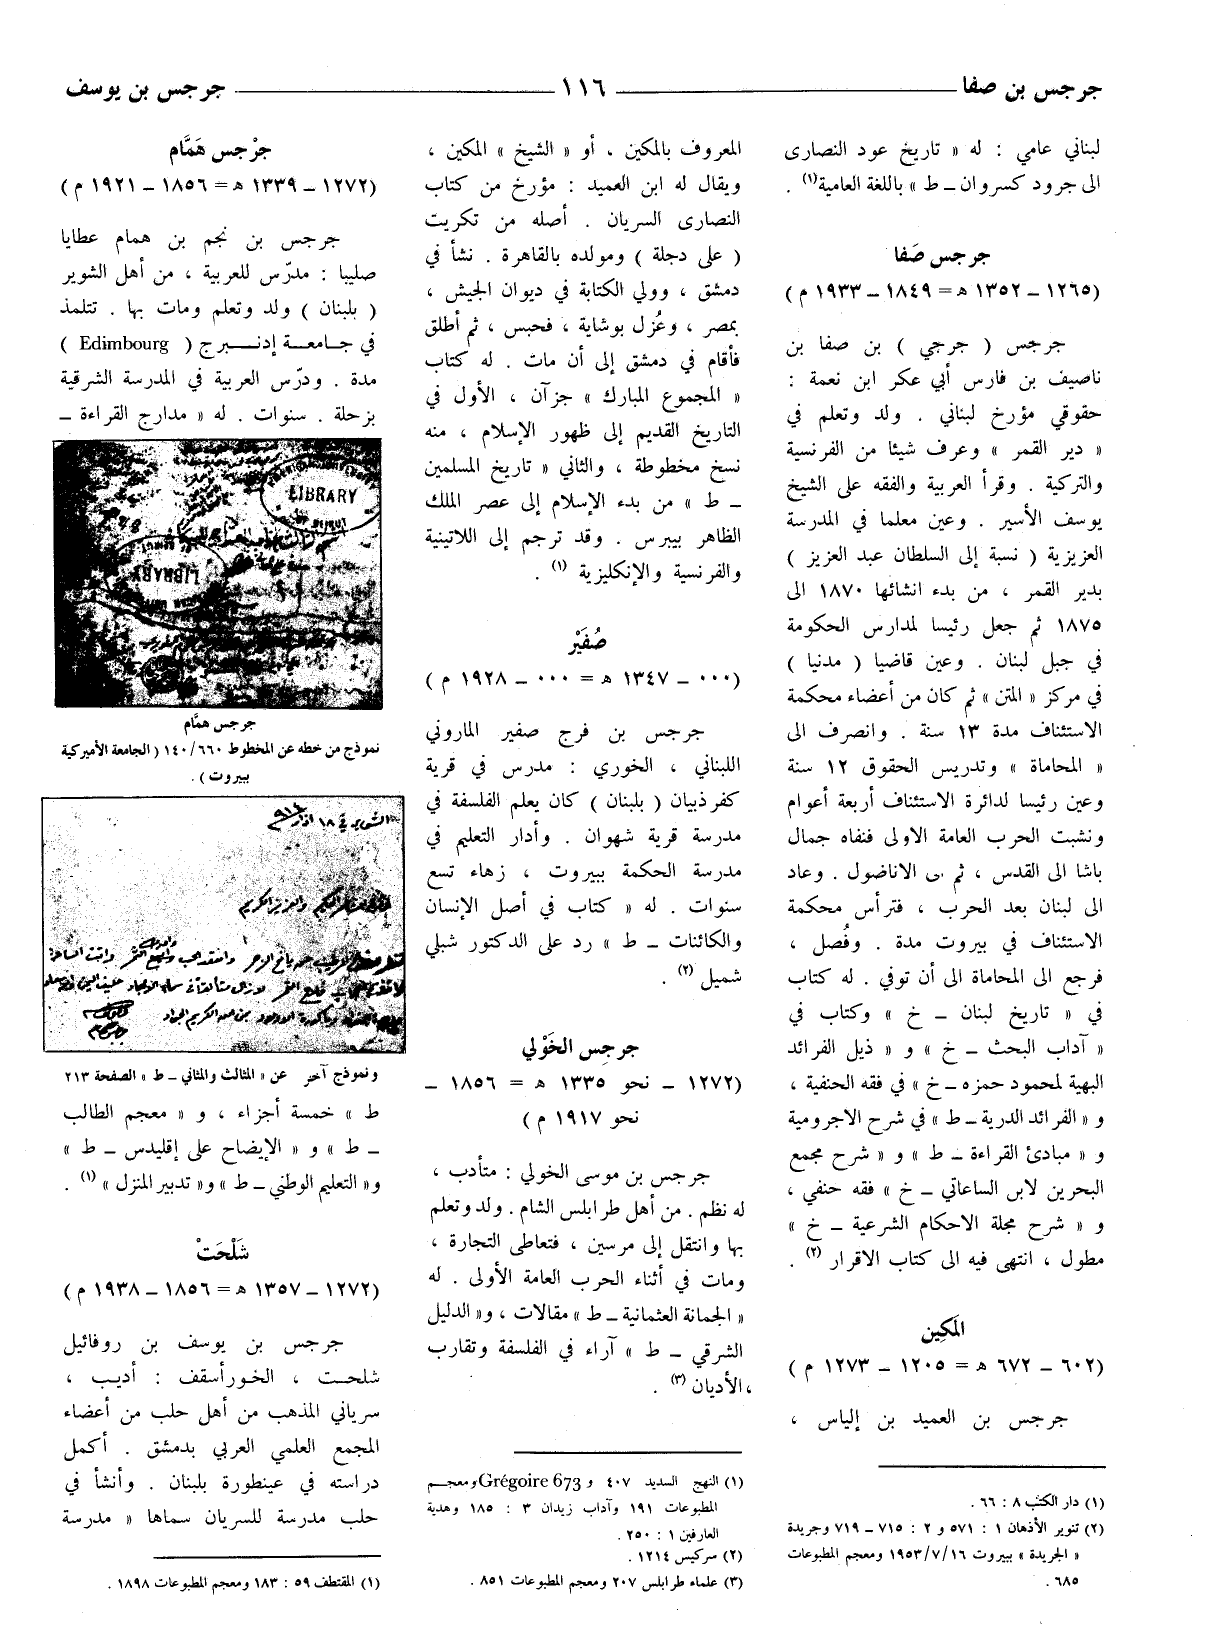 جرجس بن صفا ــــ ١١٦ ــــ جرجس بن يوسف
لبناني عامي : له « تاريخ عود النصارى
الى جرود كسروان ـ ط » باللغة العامية(١) .
جرجس صَفا
(١٢٦٥ ـ ١٣٥٢ ه‍ = ١٨٤٩ ـ ١٩٣٣ م)
جرجس ( جرجي ) بن صفا بن
ناصيف بن فارس أبي عكر ابن نعمة :
حقوقي مؤرخ لبناني . ولد وتعلم في
« دير القمر » وعرف شيئا من الفرنسية
والتركية . وقرأ العربية والفقه على الشيخ
يوسف الأسير . وعين معلما في المدرسة
العزيزية ( نسبة إلى السلطان عبد العزيز )
بدير القمر ، من بدء انشائها ١٨٧٠ الى
١٨٧٥ ثم جعل رئيسا لمدارس الحكومة
في جبل لبنان . وعين قاضيا ( مدنيا )
في مركز « المتن » ثم كان من أعضاء محكمة
الاستئناف مدة ١٣ سنة . وانصرف الى
« المحاماة » وتدريس الحقوق ١٢ سنة
وعين رئيسا لدائرة الاستئناف أربعة أعوام
ونشبت الحرب العامة الاولى فنفاه جمال
باشا الى القدس ، ثم ى الاناضول . وعاد
الى لبنان بعد الحرب ، فترأس محكمة
الاستئناف في بيروت مدة . وفُصل ،
فرجع الى المحاماة الى أن توفي . له كتاب
في « تاريخ لبنان ـ خ » وكتاب في
« آداب البحث ـ خ » و « ذيل الفرائد
البهية لمحمود حمزه ـ خ » في فقه الحنفية ،
و « الفرائد الدرية ـ ط » في شرح الاجرومية
و « مبادئ القراءة ـ ط » و « شرح مجمع
البحرين لابن الساعاتي ـ خ » فقه حنفي ،
و « شرح مجلة الاحكام الشرعية ـ خ »
مطول ، انتهى فيه الى كتاب الاقرار (٢) .
المَكِين
(٦٠٢ ـ ٦٧٢ ه‍ = ١٢٠٥ ـ ١٢٧٣ م )
جرجس بن العميد بن إلياس ،
(١) دار الكتب ٨ : ٦٦ .
(٢) تنوير الأذهان ١ : ٥٧١ و ٢ : ٧١٥ ـ ٧١٩ وجريدة
« الجريدة » ببيروت ١٦/٧/١٩٥٣ ومعجم المطبوعات
٦٨٥ .
المعروف بالمكين ، أو « الشيخ » المكين ،
ويقال له ابن العميد : مؤرخ من كتاب
النصارى السريان . أصله من تكريت
( على دجلة ) ومولده بالقاهرة . نشأ في
دمشق ، وولي الكتابة في ديوان الجيش ،
بمصر ، وعُزل بوشاية ، فحبس ، ثم أطلق
فأقام في دمشق إلى أن مات . له كتاب
« المجموع المبارك » جزآن ، الأول في
التاريخ القديم إلى ظهور الإسلام ، منه
نسخ مخطوطة ، والثاني « تاريخ المسلمين
ـ ط » من بدء الإسلام إلى عصر الملك
الظاهر بيبرس . وقد ترجم إلى اللاتينية
والفرنسية والإنكليزية (١) .
صُفَيْر
(٠٠٠ ـ ١٣٤٧ ه‍ = ٠٠٠ ـ ١٩٢٨ م )
جرجس بن فرج صفير الماروني
اللبناني ، الخوري : مدرس في قرية
كفر ذبيان ( بلبنان ) كان يعلم الفلسفة في
مدرسة قرية شهوان . وأدار التعليم في
مدرسة الحكمة ببيروت ، زهاء تسع
سنوات . له « كتاب في أصل الإنسان
والكائنات ـ ط » رد على الدكتور شبلي
شميل (٢) .
جرجس الخَوْلي
(١٢٧٢ ـ نحو ١٣٣٥ ه‍ = ١٨٥٦ ـ
نحو ١٩١٧ م )
جرجس بن موسى الخولي : متأدب ،
له نظم . من أهل طرابلس الشام . ولد وتعلم
بها وانتقل إلى مرسين ، فتعاطى التجارة ،
ومات في أثناء الحرب العامة الأولى . له
« الجمانة العثمانية ـ ط » مقالات ، و« الدليل
الشرقي ـ ط » آراء في الفلسفة وتقارب
الأديان (٣) .
(١) النهج السديد ٤٠٧ و Grégoire 673 ومعجم
المطبوعات ١٩١ وآداب زيدان ٣ : ١٨٥ وهدية
العارفين ١ : ٢٥٠ .
(٢) سركيس ١٢١٤ .
(٣) علماء طرابلس ٢٠٧ ومعجم المطبوعات ٨٥١ .
جرْجس هَمَّام
(١٢٧٢ ـ ١٣٣٩ ه‍ = ١٨٥٦ ـ ١٩٢١ م )
جرجس بن نجم بن همام عطايا
صليبا : مدرّس للعربية ، من أهل الشوير
( بلبنان ) ولد وتعلم ومات بها . تتلمذ
في جامعة إدنبرج ( Edimbourg )
مدة . ودرّس العربية في المدرسة الشرقية
بزحلة . سنوات . له « مدارج القراءة ـ
LIBRARY
LIBRARY
جرجس همَّام
نموذج من خطه عن المخطوط ١٤٠/٦٦٠ ( الجامعة الأميركية
بيروت ) .
ونموذج آخر عن « المثالث والمثاني ـ ط » الصفحة ٢١٣
ط » خمسة أجزاء ، و « معجم الطالب
ـ ط » و « الإيضاح على إقليدس ـ ط »
و« التعليم الوطني ـ ط » و« تدبير المنزل » (١) .
شَلْحَتْ
(١٢٧٢ ـ ١٣٥٧ ه‍ = ١٨٥٦ ـ ١٩٣٨ م )
جرجس بن يوسف بن روفائيل
شلحت ، الخورأسقف : أديب ،
سرياني المذهب من أهل حلب من أعضاء
المجمع العلمي العربي بدمشق . أكمل
دراسته في عينطورة بلبنان . وأنشأ في
حلب مدرسة للسريان سماها « مدرسة
(١) المقتطف ٥٩ : ١٨٣ ومعجم المطبوعات ١٨٩٨ .